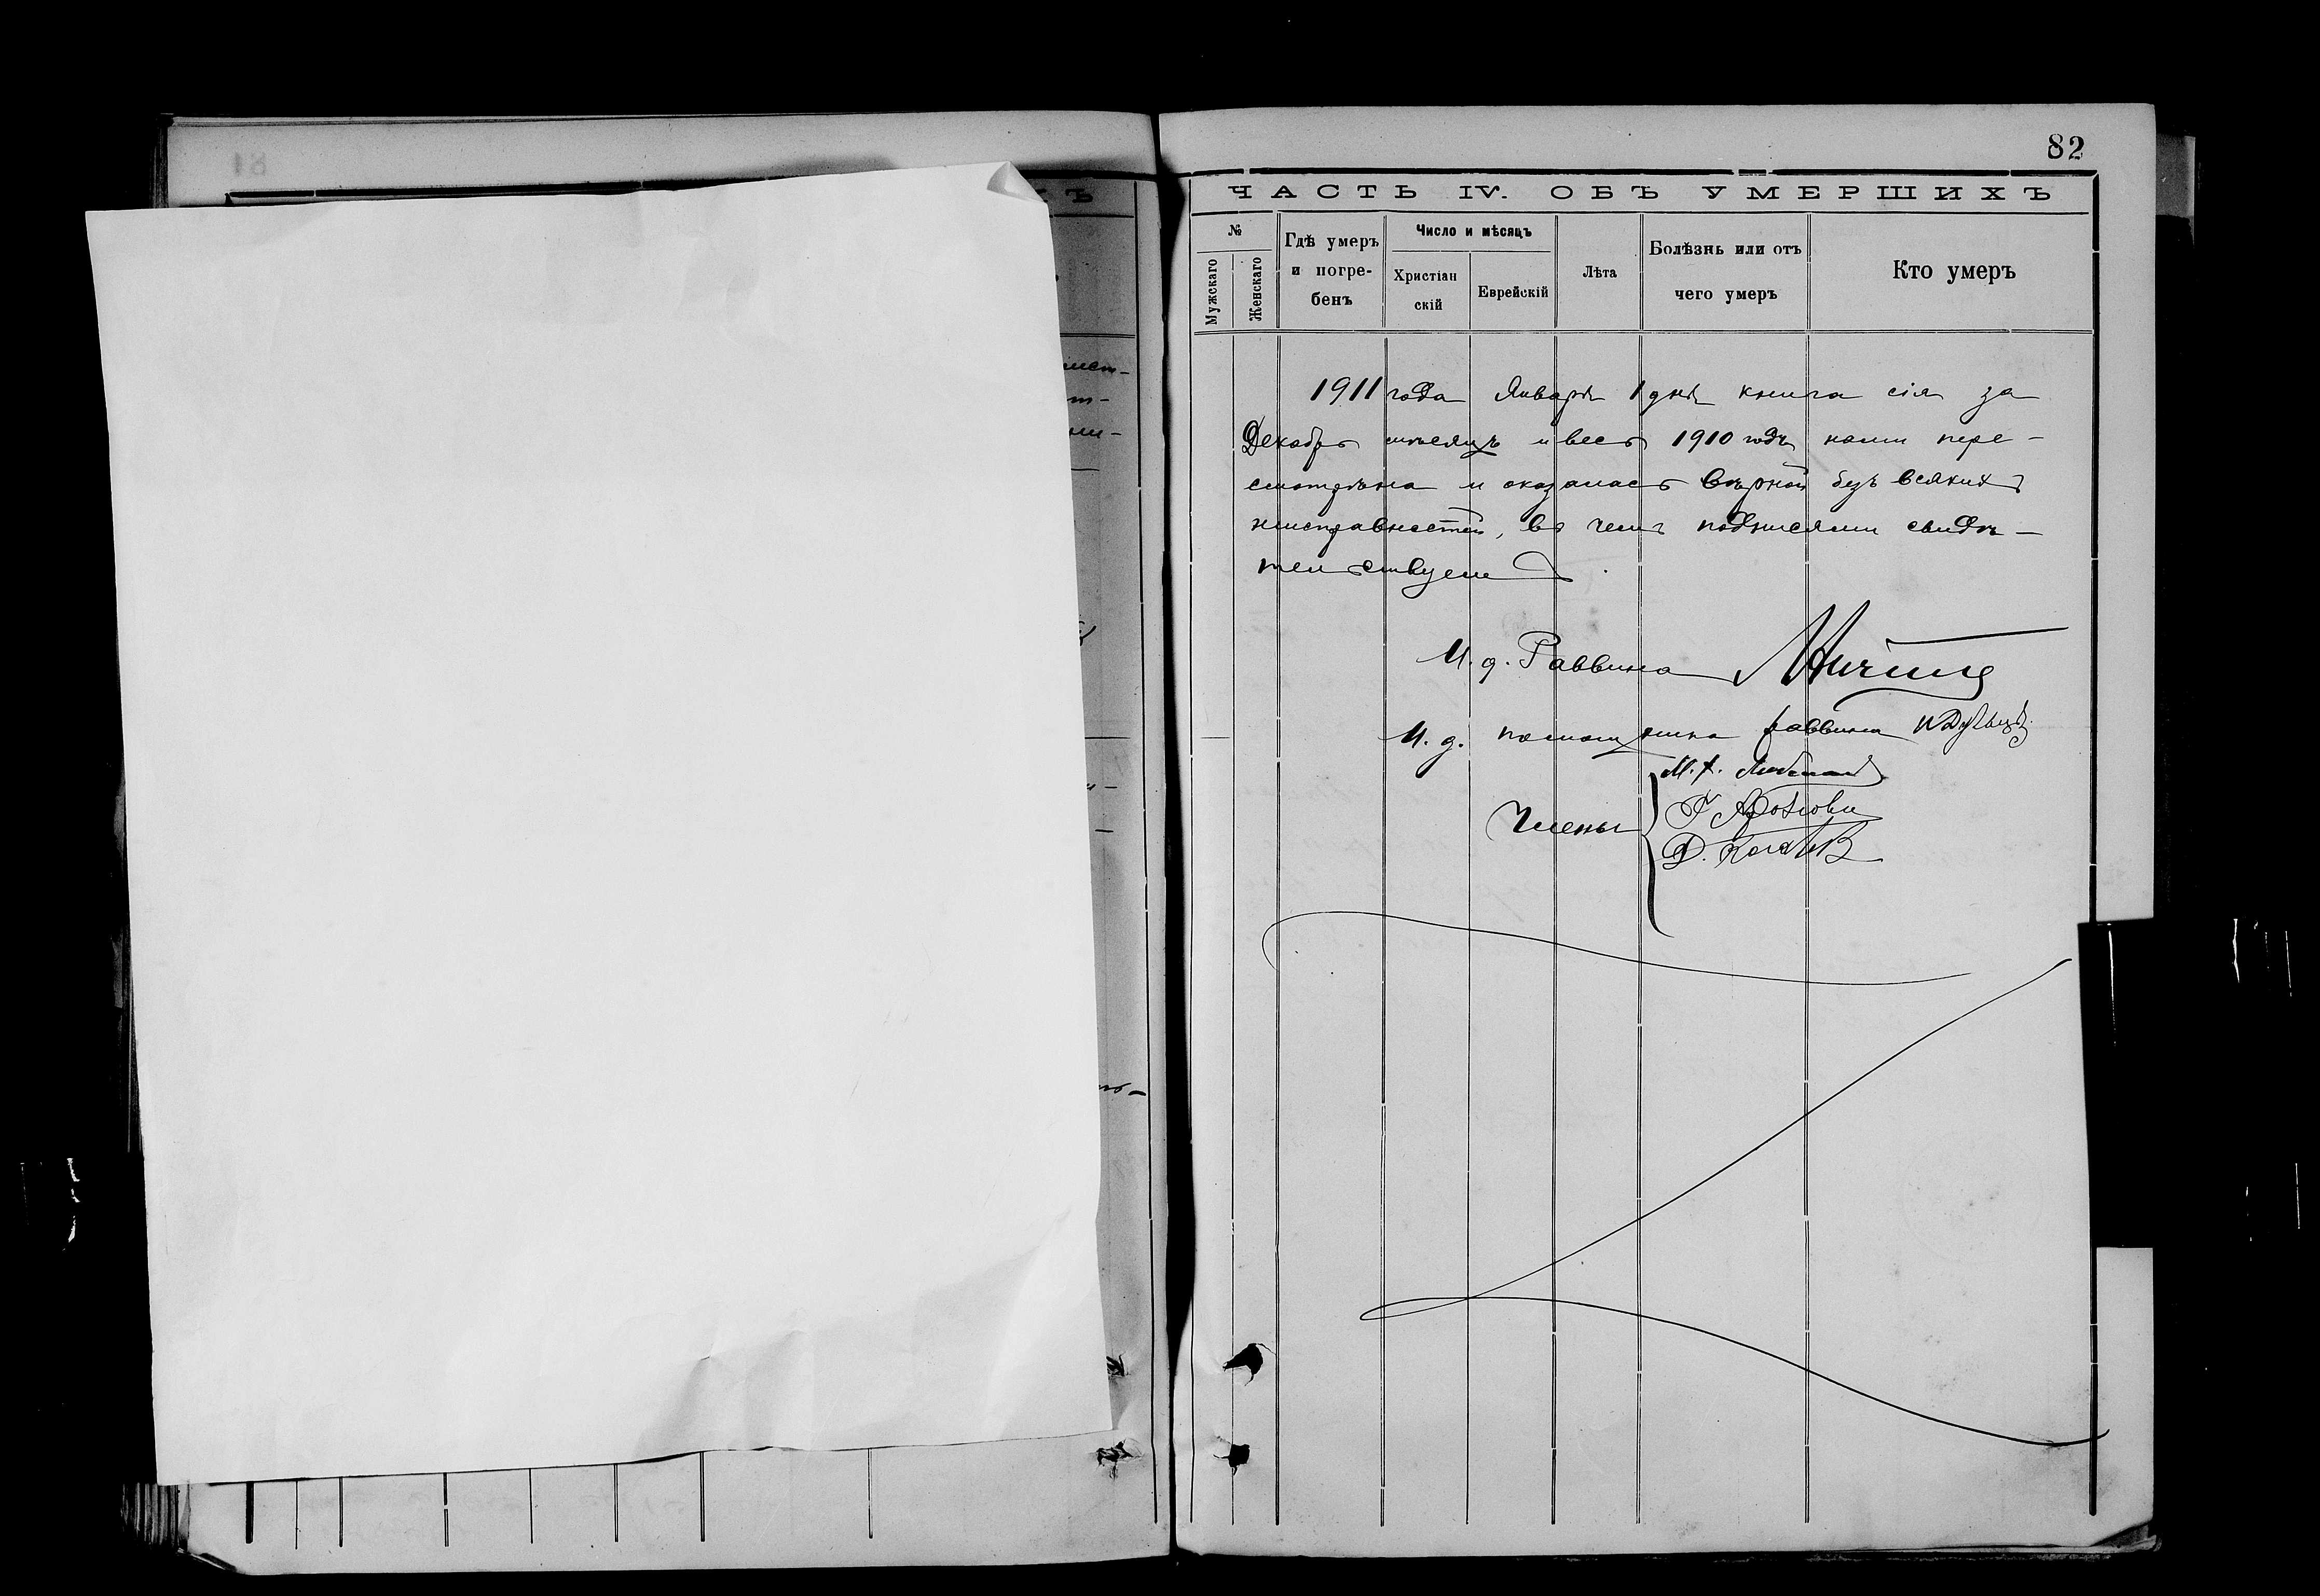 82
ЧАСТЬ IV. ОБЪ УМЕРШИХЪ
№
Мужскаго
Женскаго
Гдѣ умеръ и погре-бенъ
Число и мѣсяцъ
Христіан скій
Еврейскій
Лѣта
Болѣзнь или отъ чего умеръ
Кто умеръ
1911 года Января 1 дня книга сія за
Декабрь мѣсяцъ и весь 1910 годъ нами пере-
смотрѣна и оказалась вѣрной безъ всякихъ
неисправностей, въ чемъ подписями свидѣ-
тельствуемъ.
И. д. Раввина
И. д. помощника раввина
Члены
М.
Д. Коган